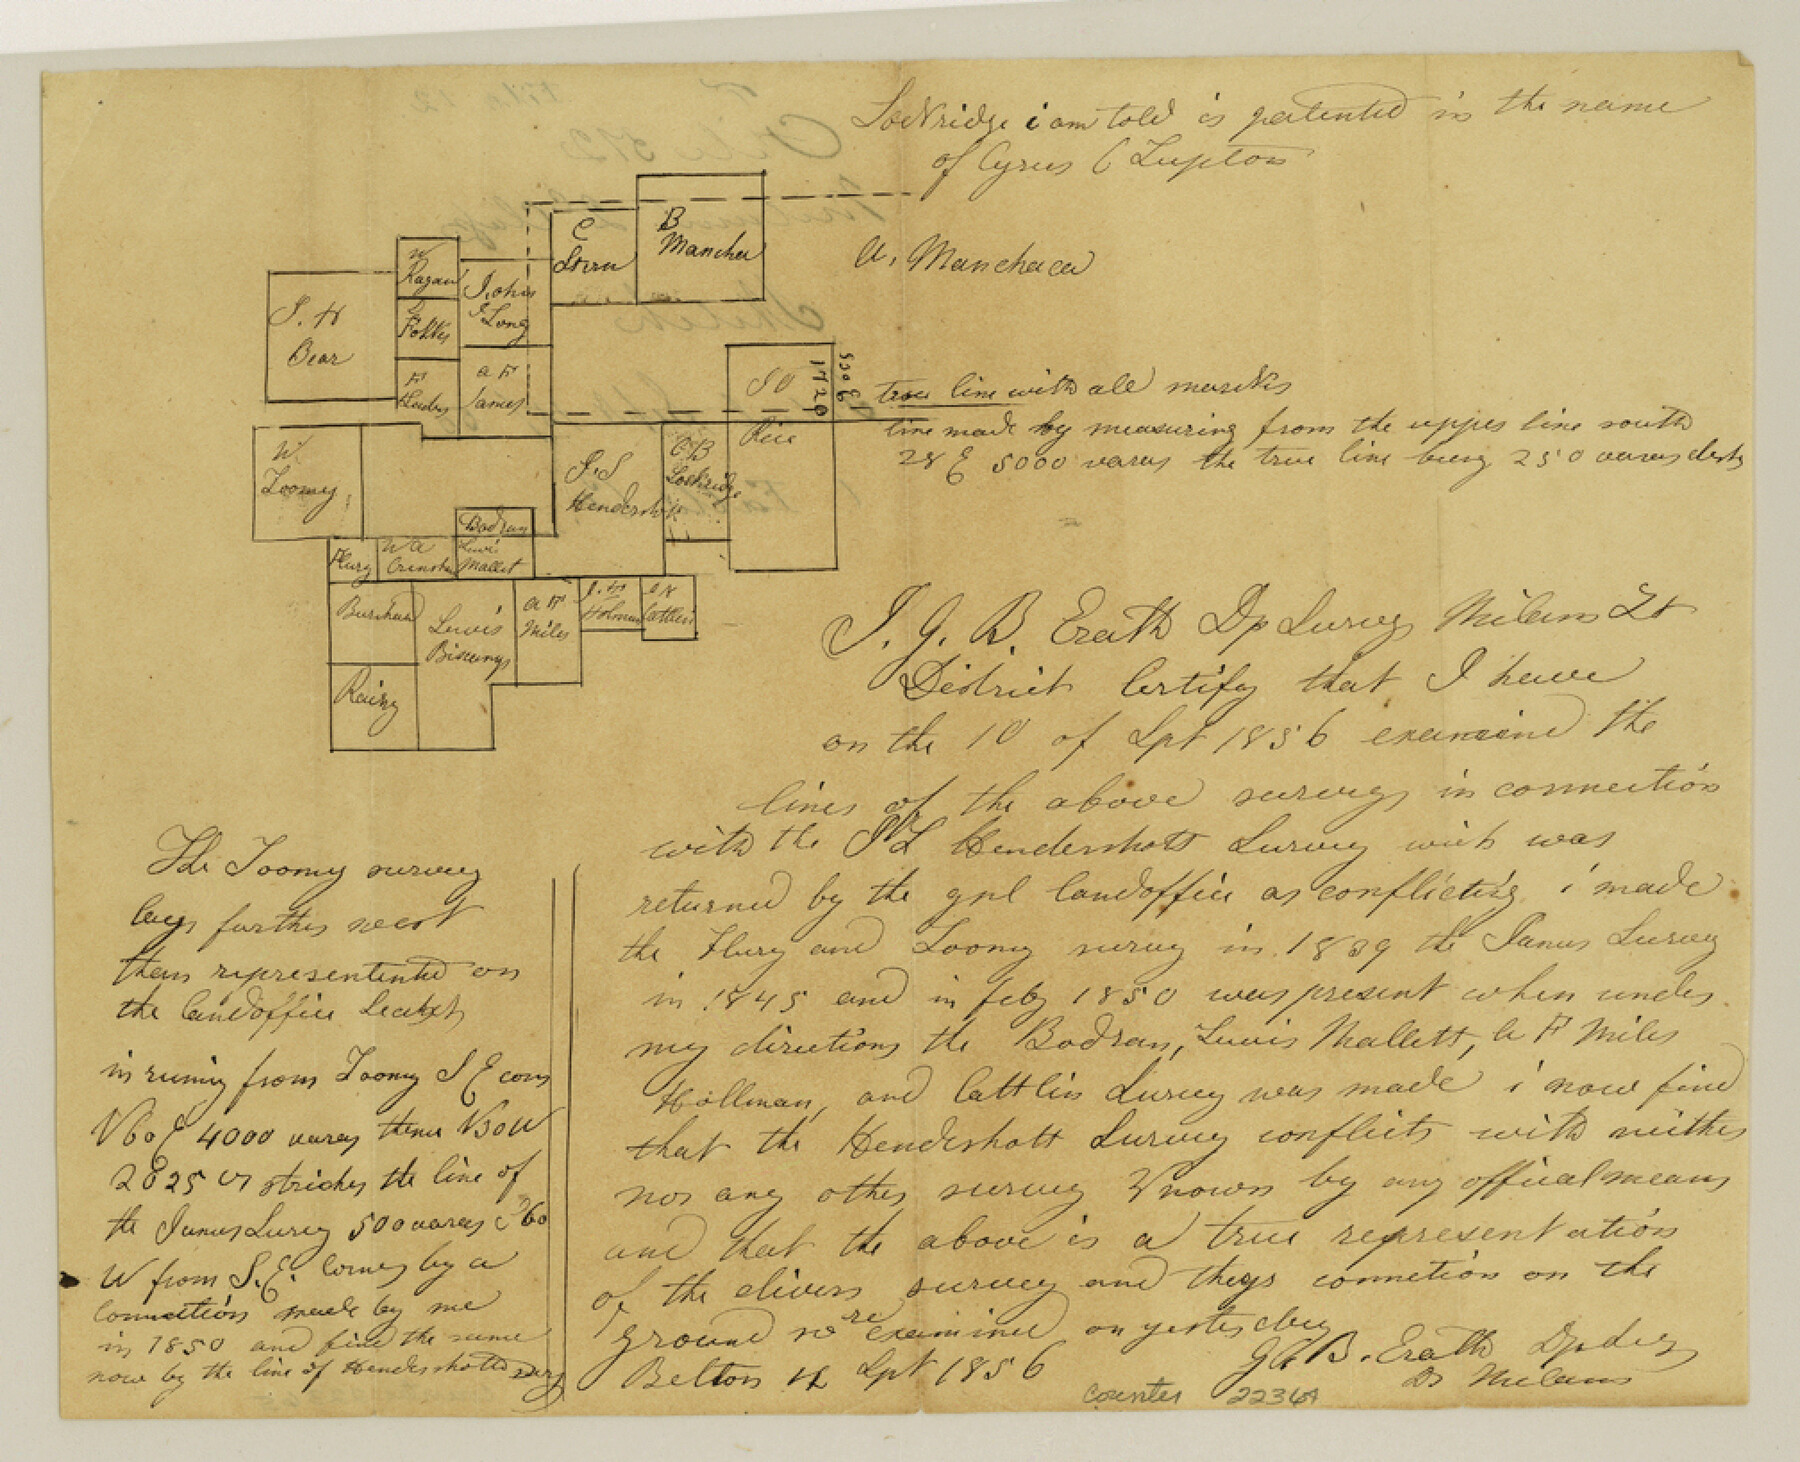 Lockridge i am told is patented in the name
of Cyrus C Lupton
U. Manchaca
C
B
Mancha
W
Ragan
John
J Long
J. H
Bear
F
A F
James
J V
1720
530
true line with all marks
line made by measuring from the upper line south
28 E 5000 varas the true line being 250 varas
Rice
W.
Toomy
J. S
Hendershot
C B
Lockridge
Bodran
Lewis
Mallet
Flury
W A
Crenshaw
Burchard
Lewis
A F
Miles
J. H
Holman
Cattlin
Rainy
I. G. B. Erath Dp Survey Milam Lt
District Certify that I have
on the 10 of Spt 1856 examined the
lines of the above surveys in connection
with the J L Hendershott Survey wich was
returned by the gnl landoffice as conflicting i made
the Flury and Toomy survey in 1839 the James Survey
in 1845 and in feby 1850 was present when under
my directions the Bodran, Lewis Mallett, A F Miles
Hollman, and Cattlin Survey was made i now find
that the Hendershott Survey conflicts with neither
nor any other survey Known by any offical means
and that the above is a true representation
of the divers survey and theyr connetion on the
ground as re examined on yesterday
Belton 11 Spt 1856
G. B. Erath Dp Sur
Ds Milam
counter 22364
The Toomy survey
lays further west
than representented on
the landoffice
in runing from Toomy S E corn
N 60 E 4000 varas thence N 30 W
2825 vs strickes the line of
the James Survey 500 varas S 60
W from S. E. Corner by a
connection made by me
in 1850 and find the same
now by the line of Hendershotts surv